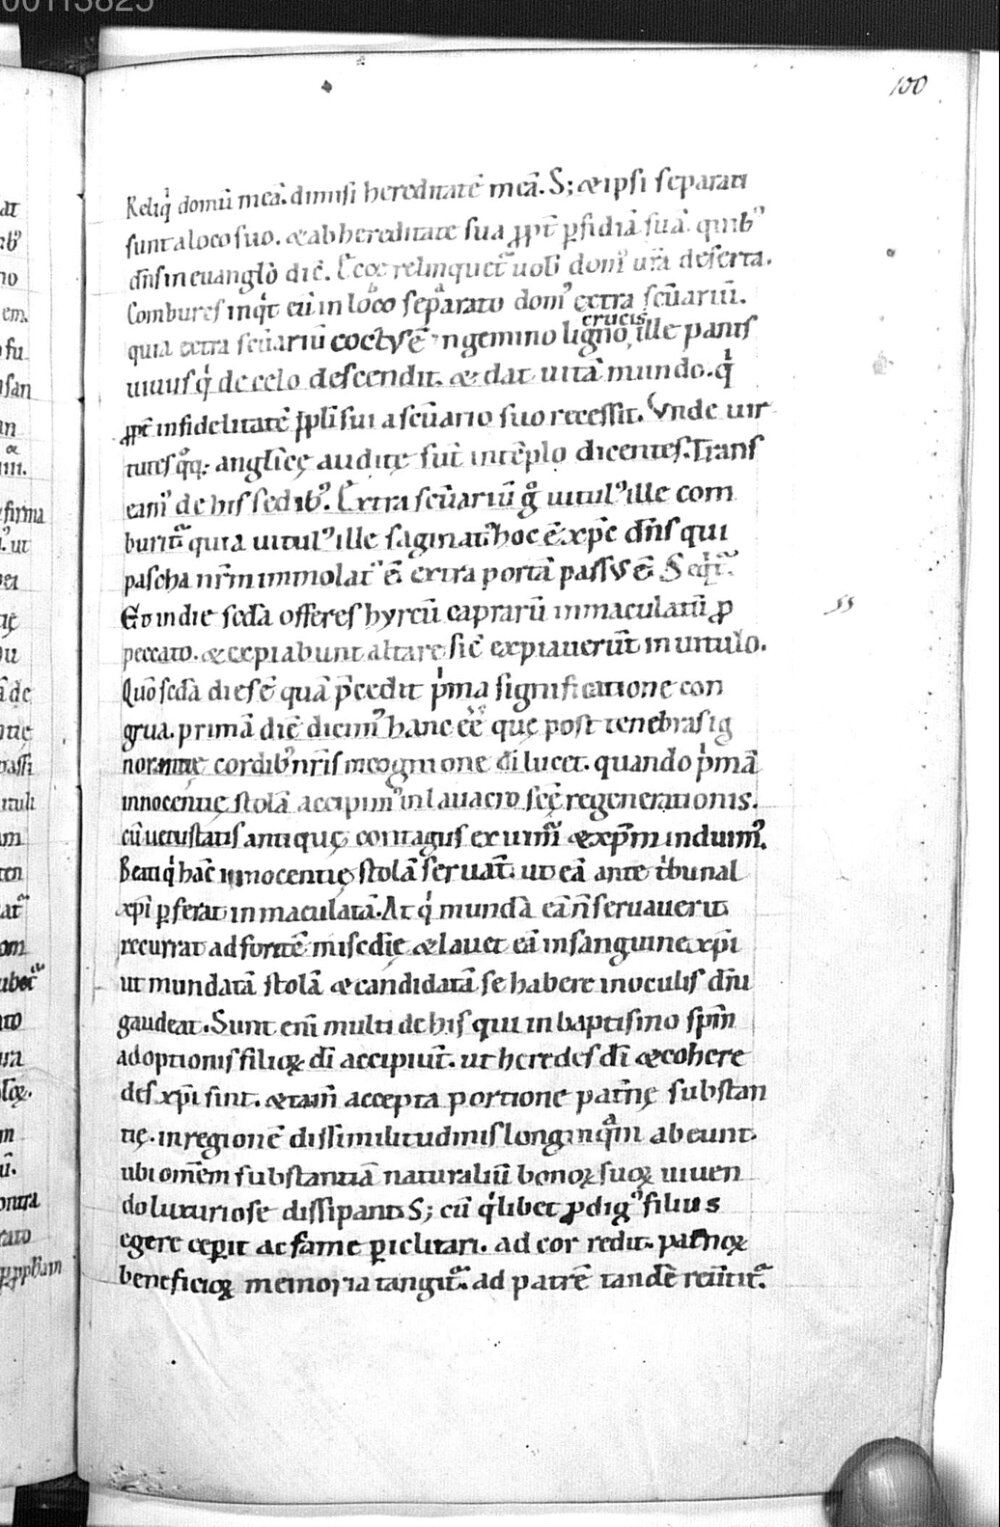 100
Reliqͥ domū meā. dimisi hereditatē meā. S; & ipsi separati
sunt a loco suo. & ab hereditate sua ꝓpt̄ ꝑfidiā suā. quibꝰ
dn̄s in euangl̄o dic̄. Ecce relinquet᷑ uob̄ domꝰ ur̄a deserta.
Combures inqͥt eū in loco sepᵃrato domꝰ extra sc̄uariū.
quia extra sc̄uariū coctus ē in gemino ligno crucis, ille panis
uiuus qͥ de celo descendit. & dat uitā mundo. qͥ
ꝓpt̄ infidelitatē ppl̄i sui a sc̄uario suo recessit. Vnde uir
tutes qͦq; anglicę auditę sūt in tēplo dicentes. Trans
eamꝰ de his sedibꝰ. Extra sc̄uariū gͦ uitulꝰ ille com
burit᷑ quia uitulꝰ ille saginatꝰ hoc ē xp̄c dn̄s qui
pascha nr̄m immolatꝰ ē extra portā passus ē. Seqͥt᷑.
Et in die sc̄da offeres hyrcū caprarū inmaculatū ꝓ
peccato. & expiabunt altare sic̄ expiauerūt in uitulo.
Quō sc̄da dies ē quā p̄cedit pͥma significatione con
grua. primā diē dicimꝰ hanc ēē quę post tenebras ig
norantię cordibꝰ nr̄is in cognitione dī lucet. quando pͥmā
innocentię stolā accipimꝰ in lauacro sc̄ę regenerationis.
cū uetustatis antiquę contagiis exuim᷑ & xp̄m induimꝰ.
Beati qͥ hāc innocentię stolā seruāt. ut eā ante tͥbunal
xp̄i ꝑferat inmaculatā. At qͥ mundā eā n̄ seruauerit
recurrat ad fontē miscd̄ię & lauet eā in sanguine xp̄i
ut mundatā stolā & candidatā se habere in oculis dn̄i
gaudeat. Sunt eni̅ multi de his qui in baptismo sp̄m
adoptionis filioꝝ dī accipiūt. ut heredes dī & cohere
des xp̄i sint. & tam̄ accepta portione pat̄nę substan
tię. in regionē dissimilitudinis longinqᵃm abeunt.
ubi om̄em substantiā naturaliū bonoꝝ suoꝝ uiuen
do luxuriose dissipant. S; cū qͥlibet ꝓdigꝰ filius
egere cepit ac fame ꝑiclitari. ad cor redit. pat̄noꝝ
beneficioꝝ memoria tangit᷑. ad patrē tandē reūtit᷑.